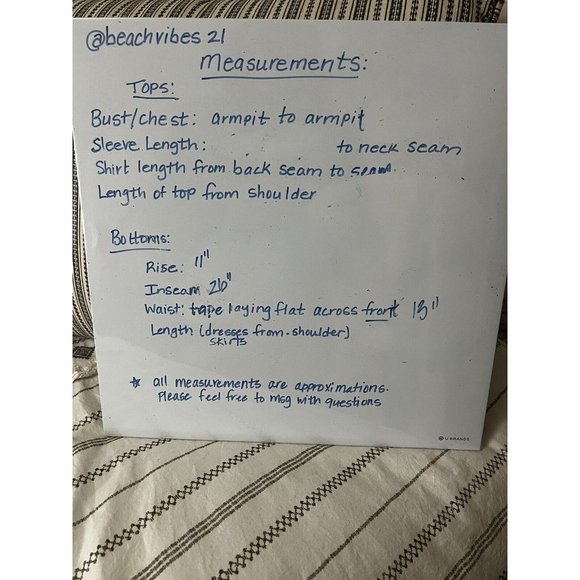 @beachvibes 21
Measurements:
Tops:
Bust/chest: armpit to armpit
Sleeve Length: to neck seam
Shirt length from back seam to seam
Length of top from shoulder
Bottoms:
Rise: 11"
Inseam 26"
Waist: tape laying flat across front 13"
Length (dresses from shoulder)
skirts
☆ all measurements are approximations.
Please feel free to msg with questions
U BRANDS